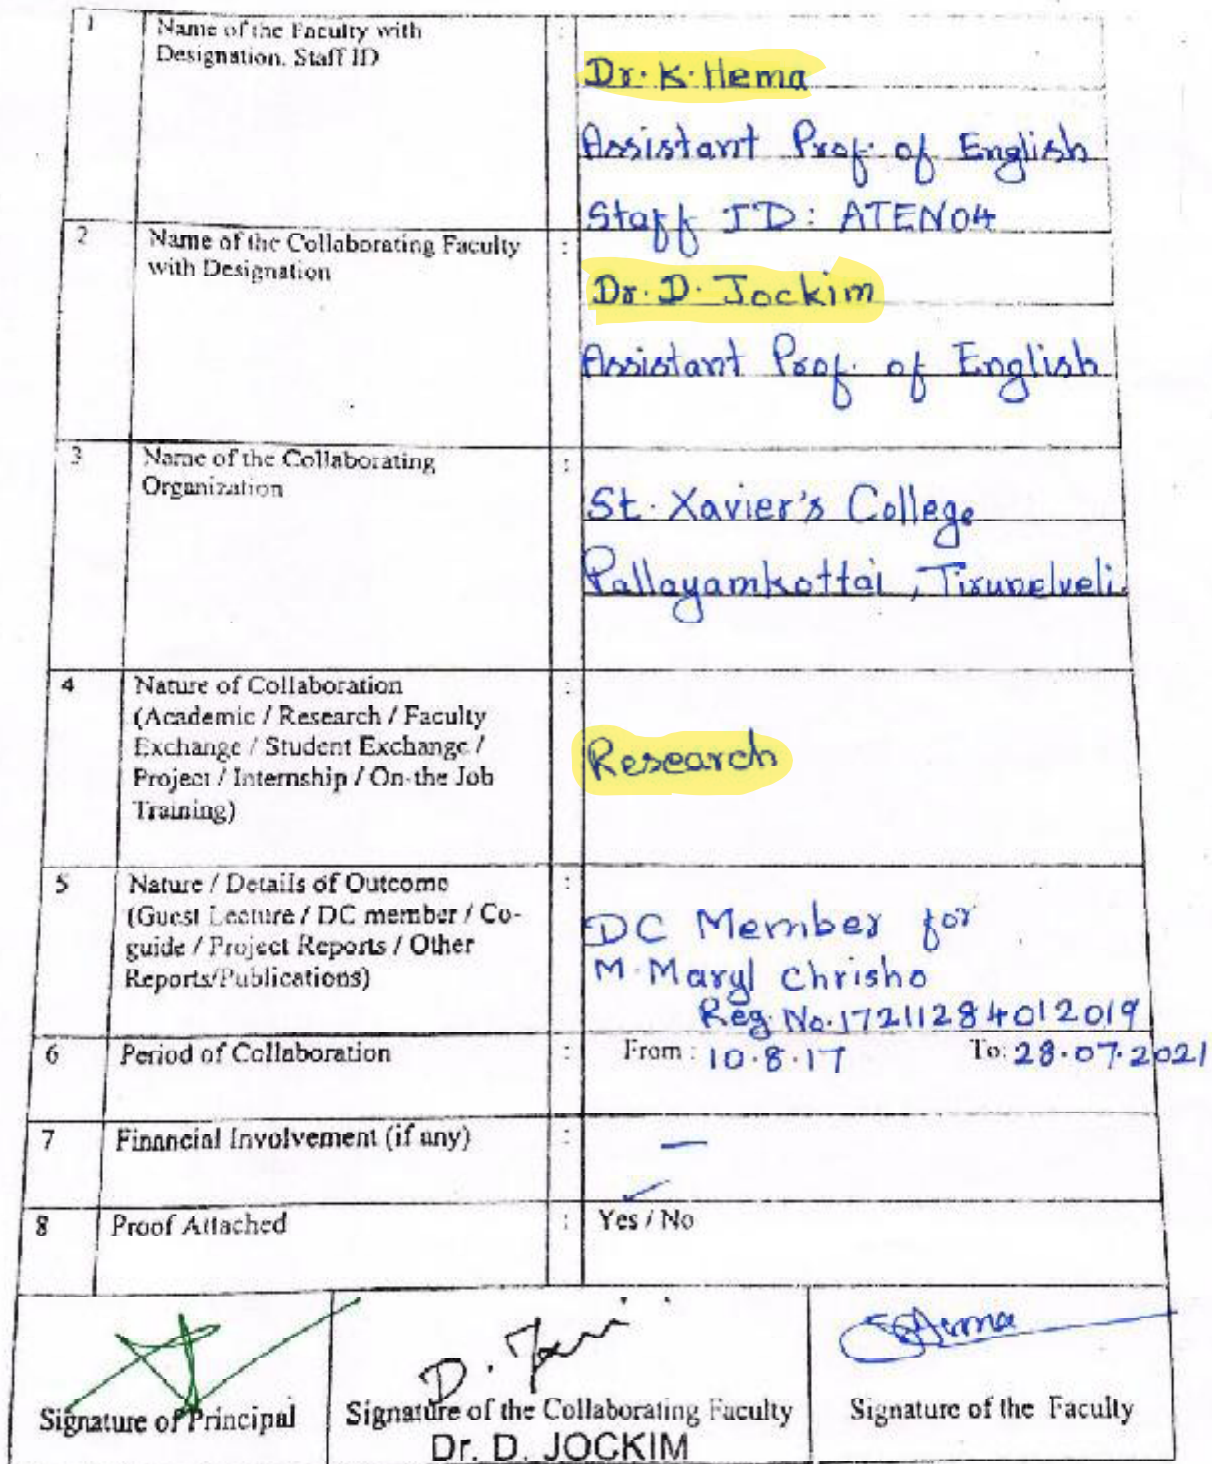 1 Name of the Faculty with : Dr. K. Hema
Designation, Staff ID
Assistant Prof. of English
Staff ID: ATEN04
2 Name of the Collaborating Faculty :
with Designation
Dr. D. Jockim
Assistant Prof. of English
3 Name of the Collaborating :
Organization
St. Xavier's College
Pallayamkottai, Tirunelveli.
4 Nature of Collaboration :
(Academic / Research / Faculty
Exchange / Student Exchange /
Project / Internship / On-the Job
Training)
Research
5 Nature / Details of Outcome :
(Guest Lecture / DC member / Co-
guide / Project Reports / Other
Reports/Publications)
DC Member for
M. Maryl Chrisho
Reg. No. 17211284012019
6 Period of Collaboration : From : 10.8.17 To: 28.07.2021
7 Financial Involvement (if any) : –
8 Proof Attached : Yes / No
D. 
Hema
Signature of Principal
Signature of the Collaborating Faculty
Signature of the Faculty
Dr. D. JOCKIM